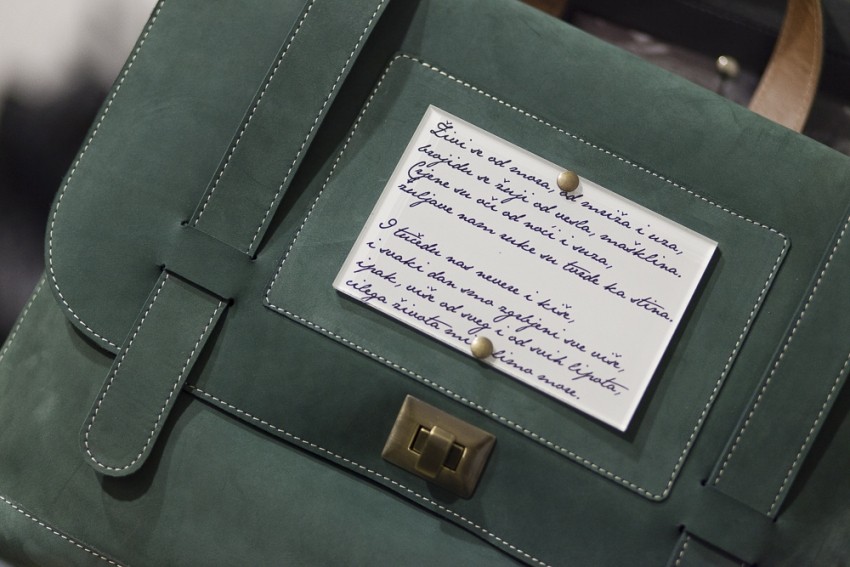 Živi se od mora, od mriža i uza,
brojidu se žuji od vesla, mašklina.
Crjene su oči od noći i suza,
žuljave nam ruke su tvrde ka stina.
I tučedu nas nevere i kiše,
i svaki dan smo zgobjeni sve više,
ipak, više od sveg i od svih lipota,
cilega života mi limo more.